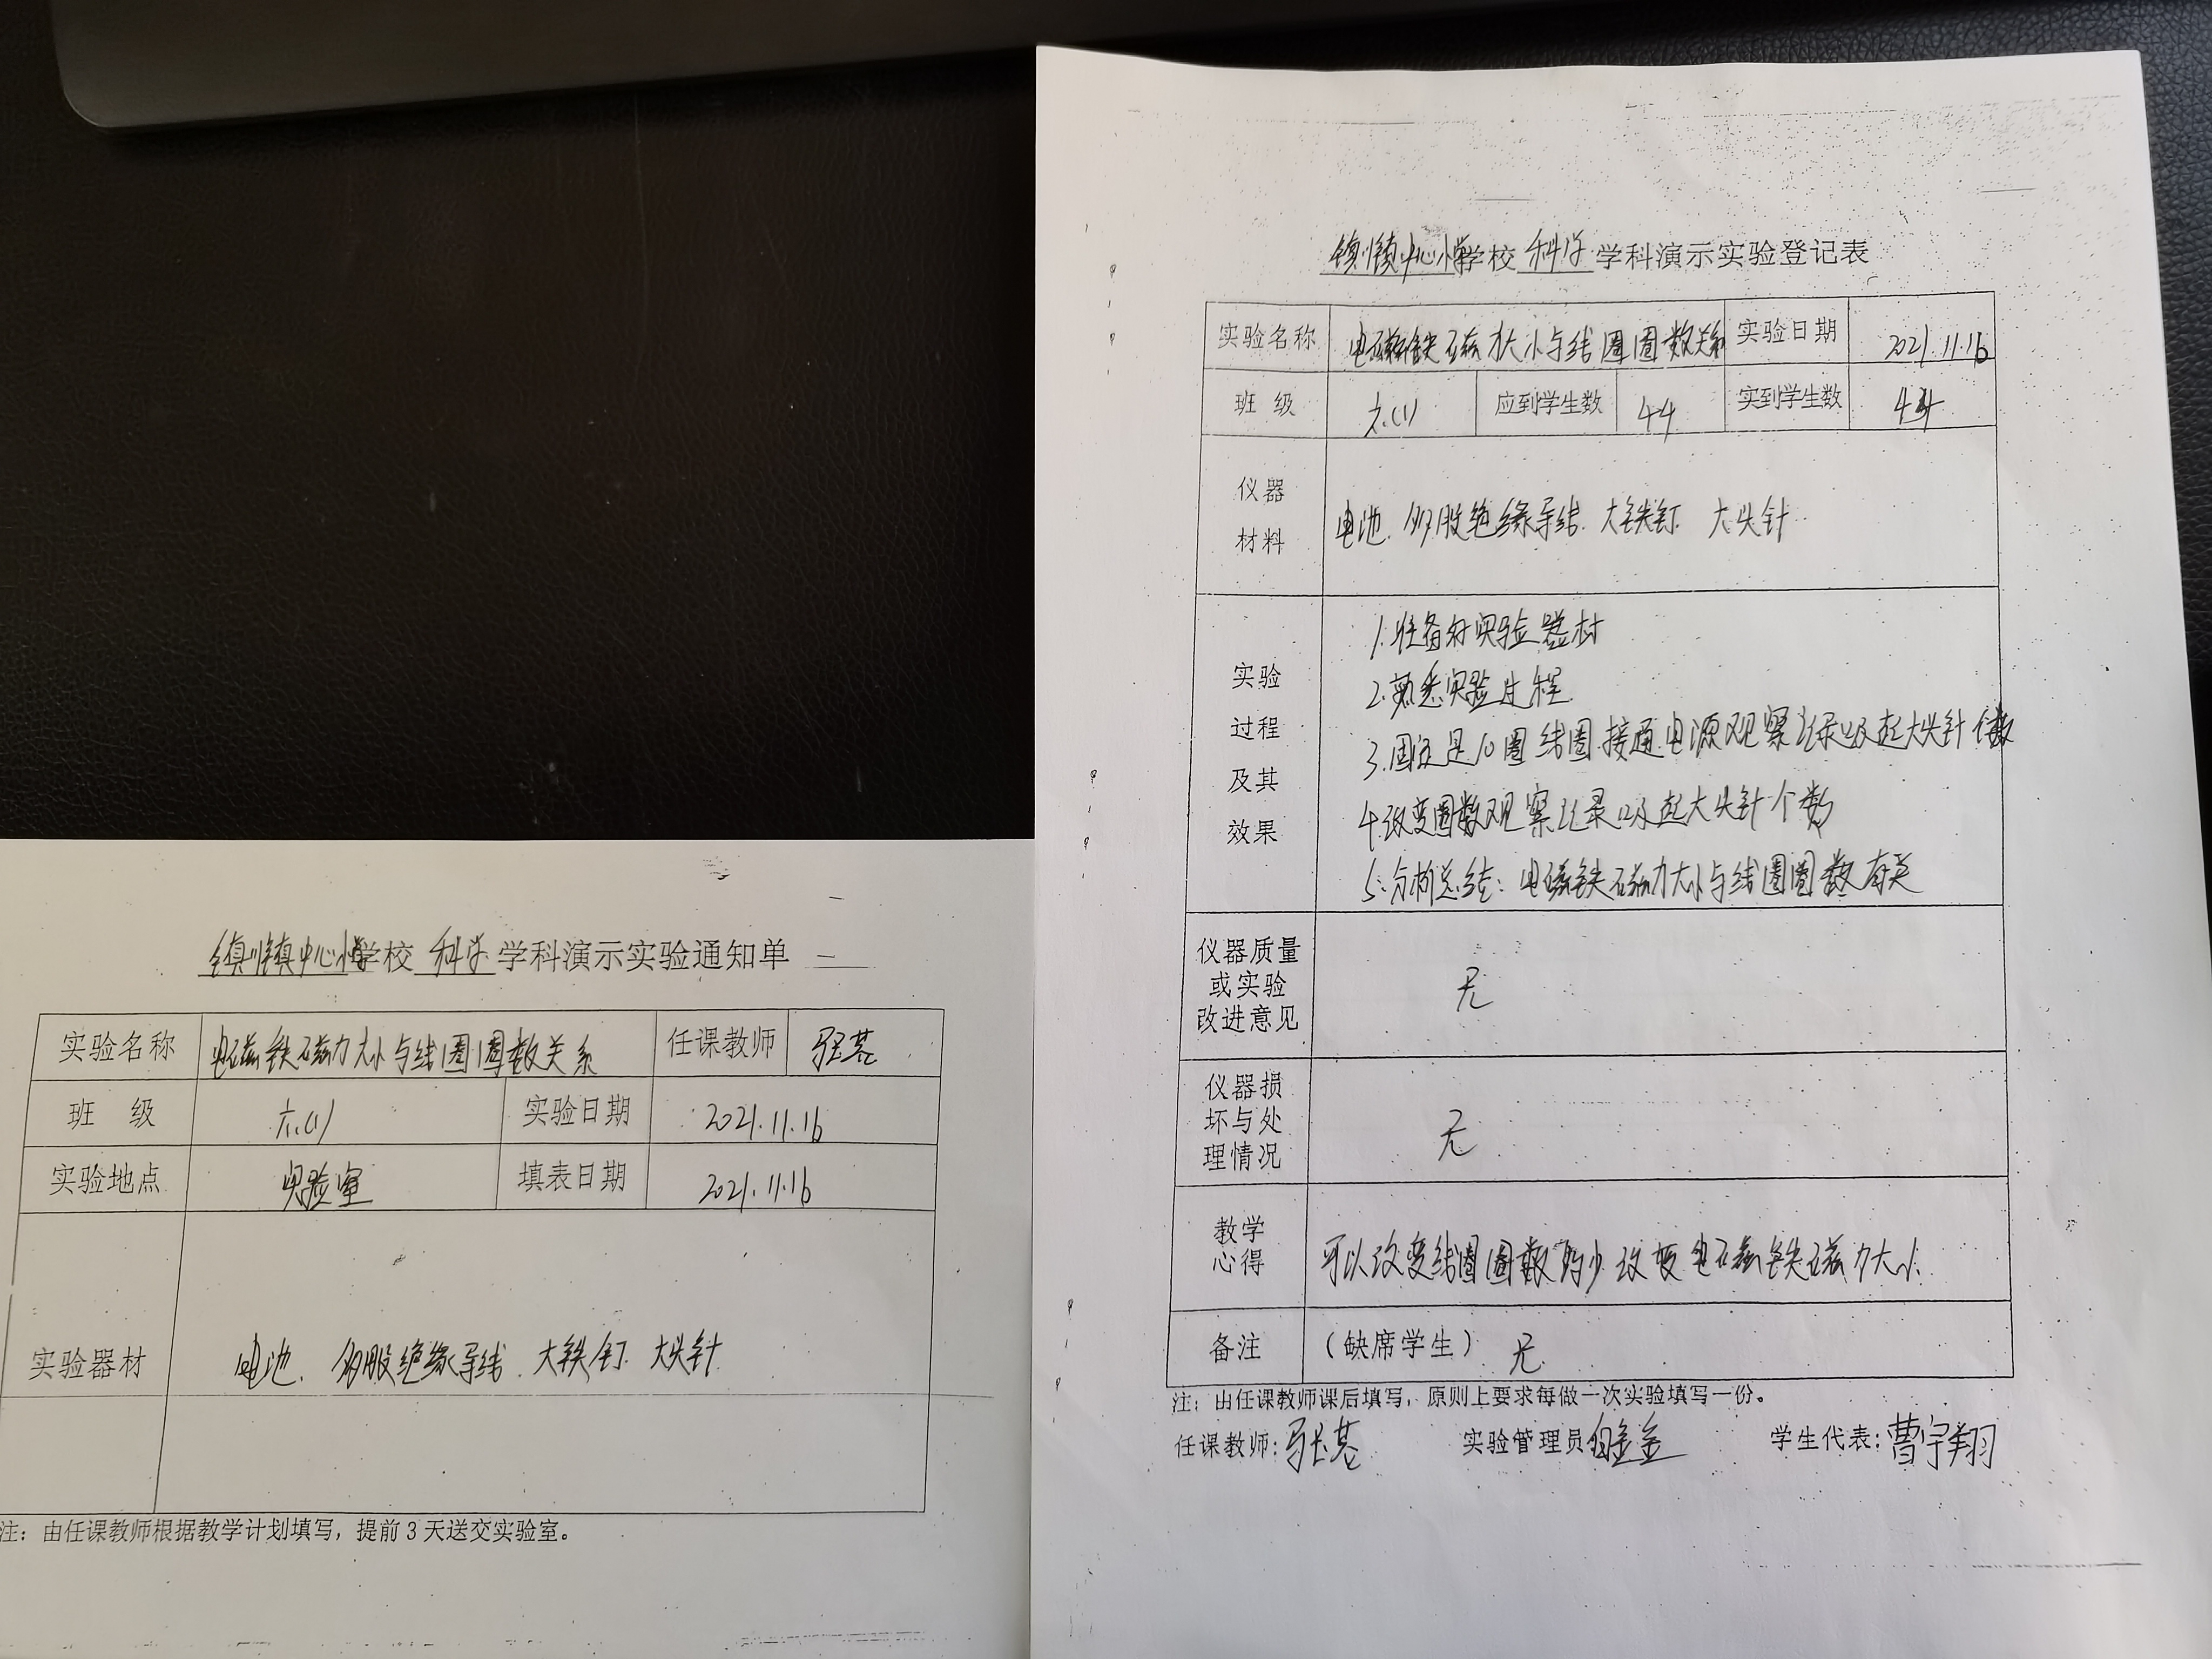 镇川镇中心小学校 科学 学科演示实验通知单
实验名称 电磁铁磁力大小与线圈圈数关系 任课教师
班 级 六(1) 实验日期 2021.11.16
实验地点 实验室 填表日期 2021.11.16
实验器材 电池. 多股绝缘导线. 大铁钉. 大头针
注：由任课教师根据教学计划填写，提前3天送交实验室。
镇川镇中心小学校 科学 学科演示实验登记表
实验名称 电磁铁磁力大小与线圈圈数关系 实验日期 2021.11.16
班 级 六(1) 应到学生数 44 实到学生数 44
仪器
材料
电池. 多股绝缘导线. 大铁钉. 大头针
实验
过程
及其
效果
1.准备好实验器材
2.熟悉实验过程
3.固定是10圈线圈.接通电源观察记录吸起大头针个数
4.改变圈数观察记录吸起大头针个数
5.分析总结：电磁铁磁力大小与线圈圈数有关
仪器质量
或实验
改进意见
无
仪器损
坏与处
理情况
无
教学
心得
可以改变线圈圈数的少改变电磁铁磁力大小
备注 （缺席学生） 无
注：由任课教师课后填写，原则上要求每做一次实验填写一份。
任课教师: 实验管理员 学生代表:曹宇翔